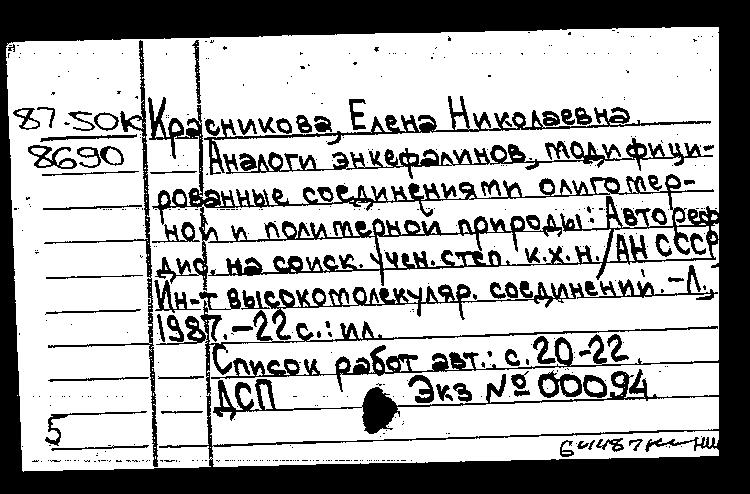 87-50К Красникова, Елена Николаевна.
8690 Аналоги энкефалинов, модифици-
рованные соединениями олигомер-
ной и полимерной природы: Автореф
дис. на соиск. учен. степ. к.х.н./АН СССР
Ин-т высокомолекуляр. соединений. -Л.,
1987. -22 с.: ил.
Список работ авт.: с. 20-22.
ДСП Экз № 00094.
5